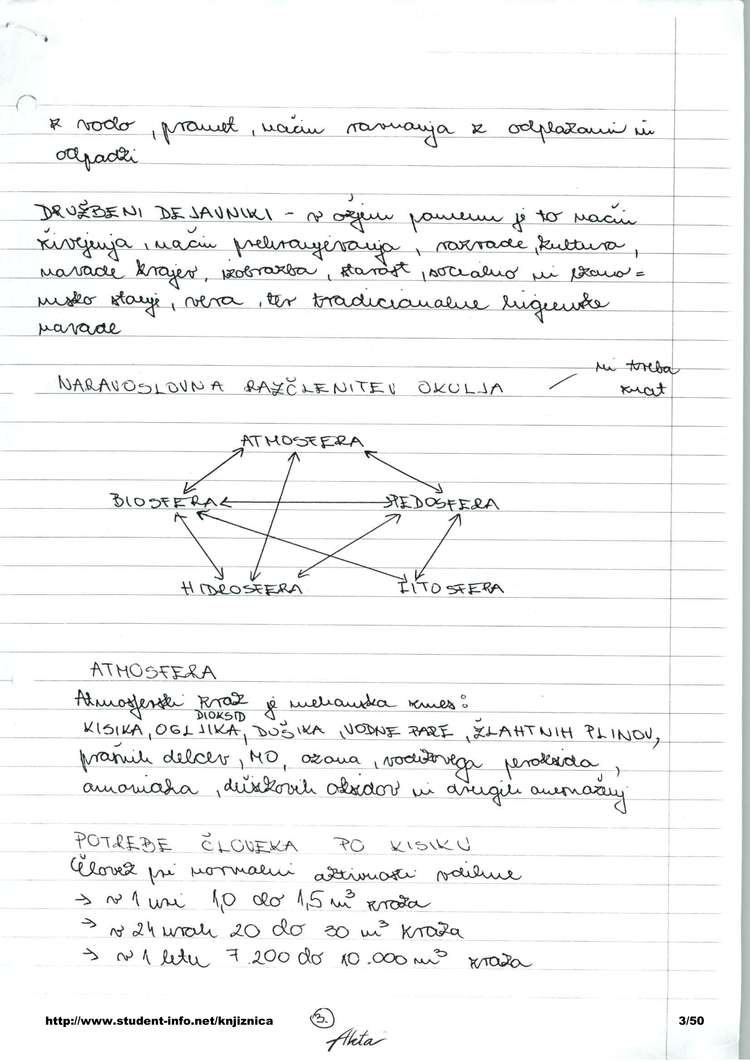 z vodo, promet, način ravnanja z odplakami in
odpadki
DRUŽBENI DEJAVNIKI - v ožjem pomenu je to način
življenja, način prehranjevanja, razvade, kultura,
navade krajev, izobrazba, starost, socialno in ekono=
msko stanje, vera, ter tradicionalne higienske
navade
NARAVOSLOVNA RAZČLENITEV OKOLJA
ni treba
znat
ATMOSFERA
BIOSFERA
PEDOSFERA
HIDROSFERA
LITOSFERA
ATMOSFERA
Atmosferski zrak je mehanska zmes:
DIOKSID
KISIKA, OGLJIKA, DUŠIKA, VODNE PARE, ŽLAHTNIH PLINOV,
prašnih delcev, MO, ozona, vodikovega peroksida,
amoniaka, dušikovih oksidov in drugih onesnaževal
POTREBE ČLOVEKA PO KISIKU
Človek pri normalni aktivnosti vdihne
→ v 1 uri 1,0 do 1,5 m³ zraka
→ v 24 urah 20 do 30 m³ zraka
→ v 1 letu 7.200 do 10.000 m³ zraka
http://www.student-info.net/knjiznica
3.
3/50